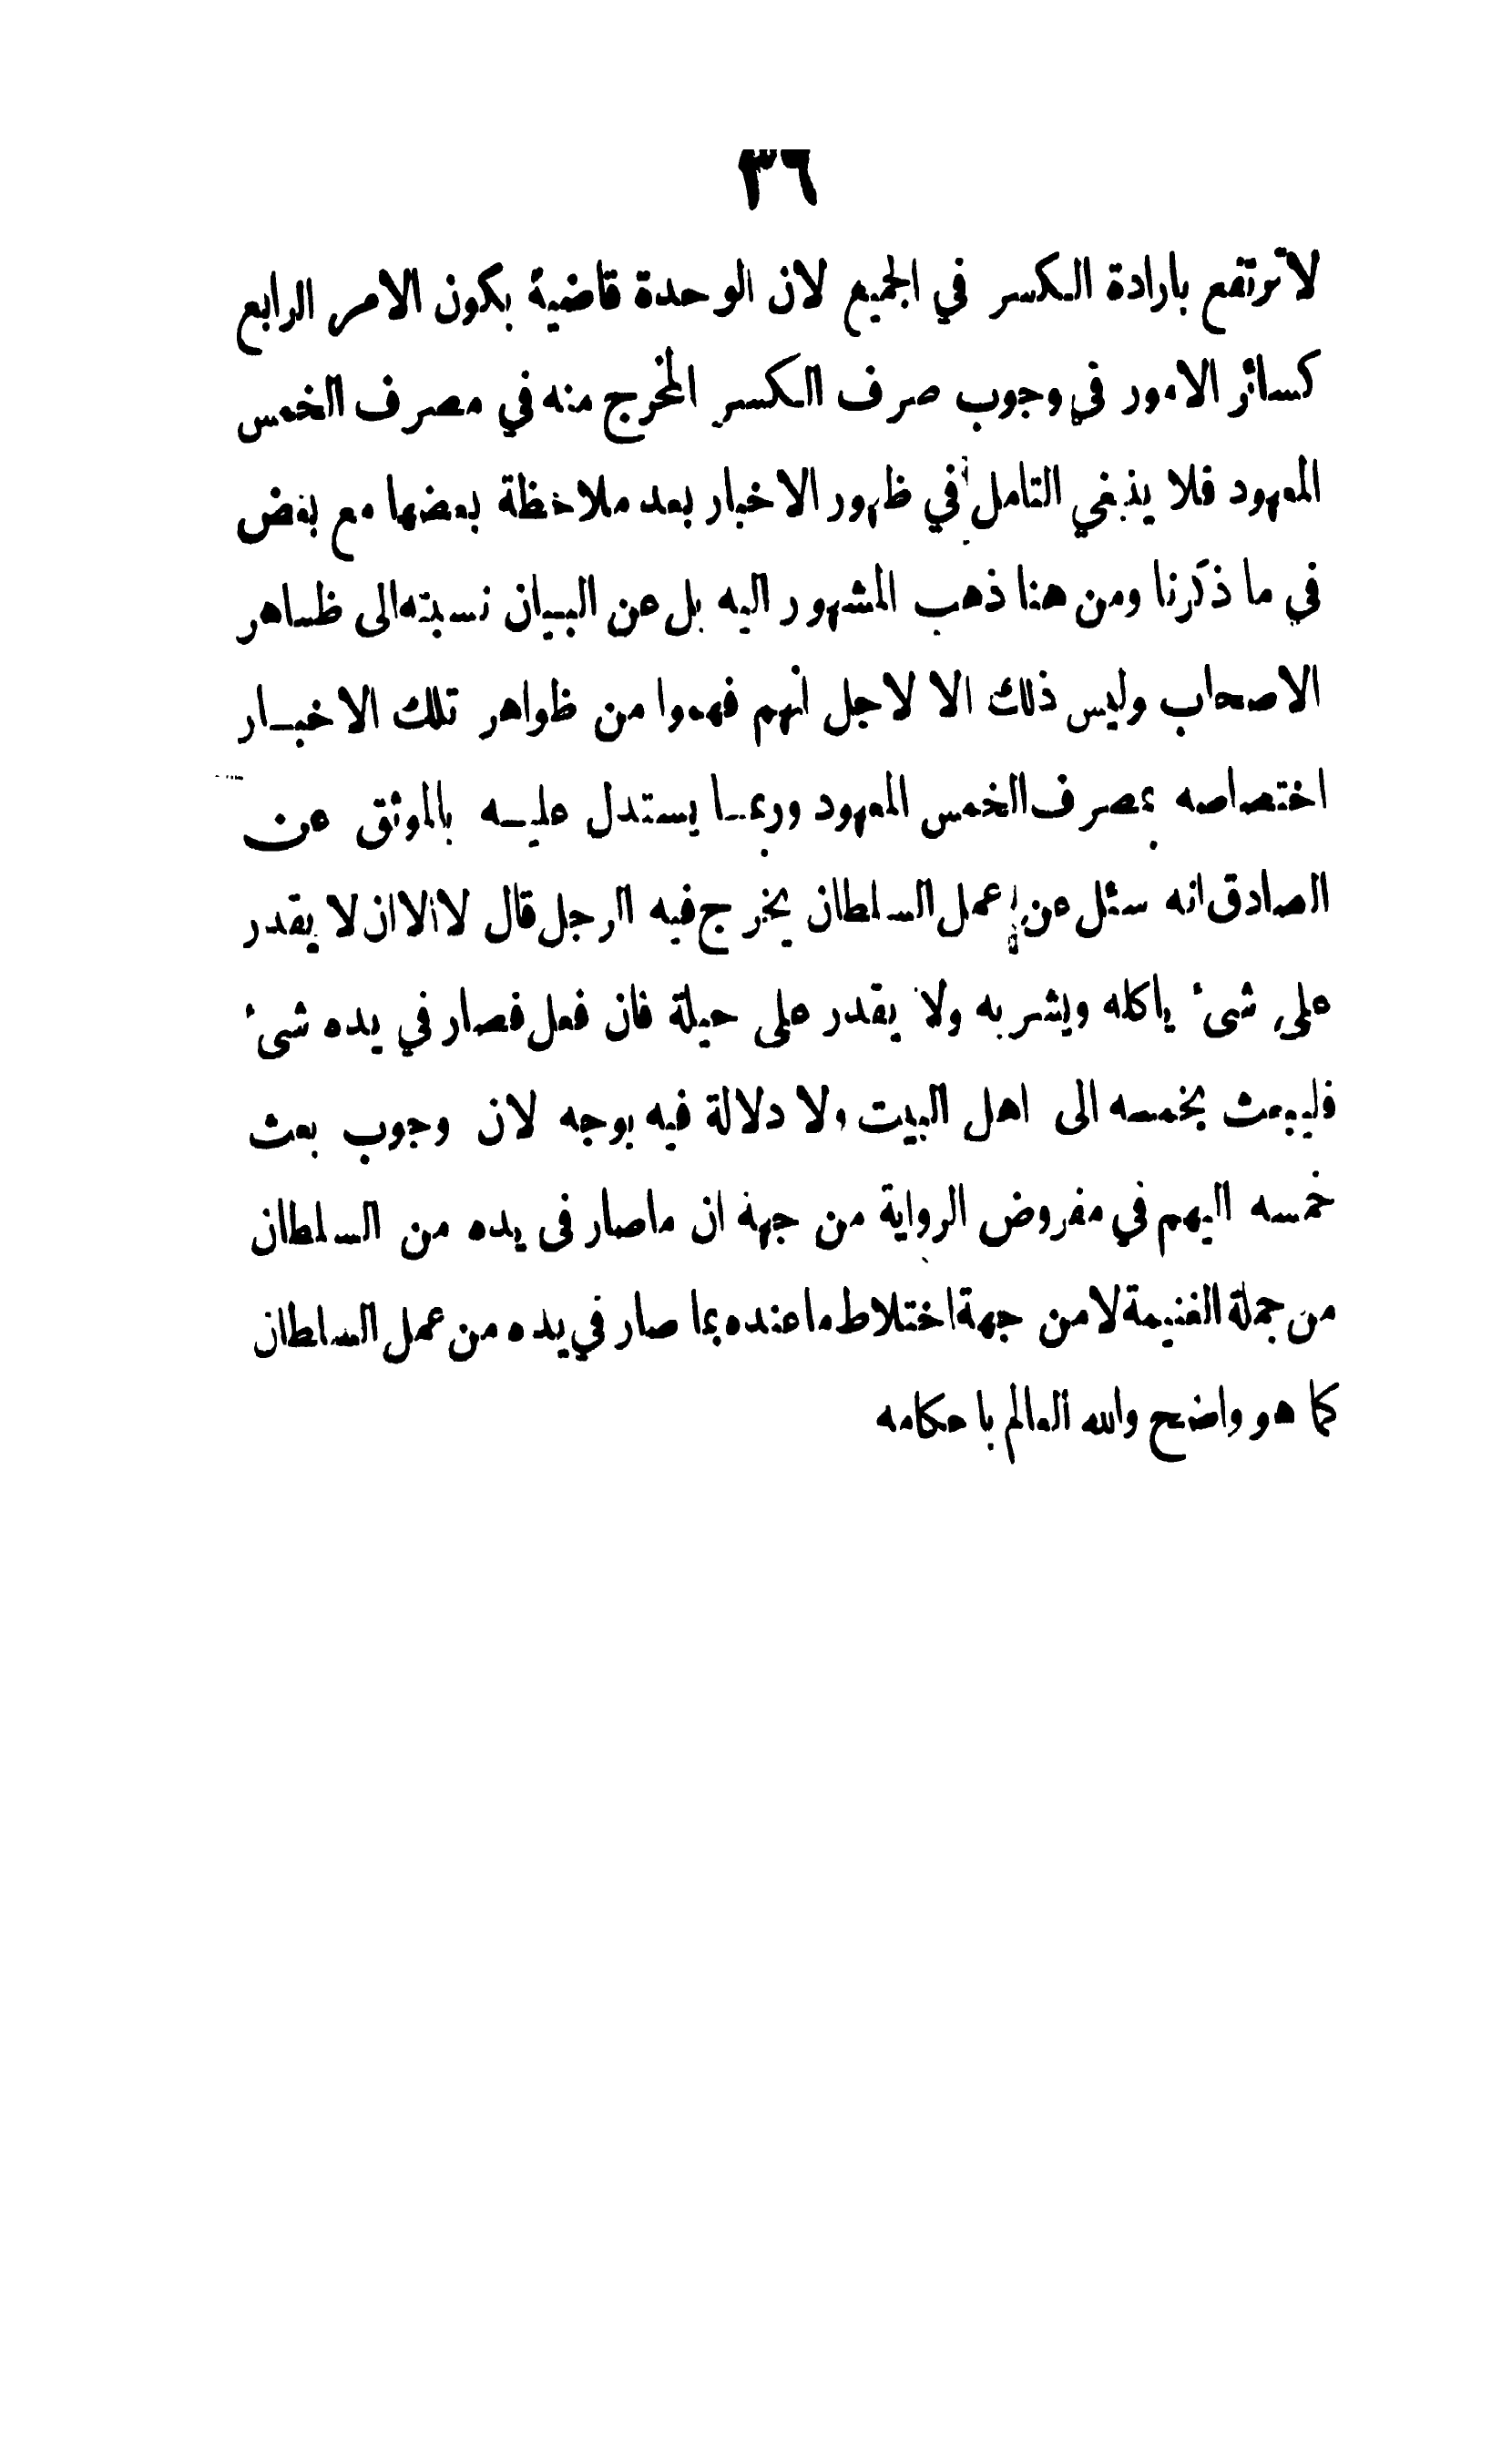 ٣٦
لا ترتفع بارادة الكسر في الجميع لان الوحدة قاضية بكون الامر الرابع
كسائر الامور في وجوب صرف الكسر المخرج منه في مصرف الخمس
المعهود فلا ينبغي التامل في ظهور الاخبار بعد ملاحظة بعضها مع بعض
في ما ذكرنا ومن هنا ذهب المشهور اليه بل عن البيان نسبته الى ظاهر
الاصحاب وليس ذلك الا لاجل انهم فهموا من ظواهر تلك الاخبار
اختصاصه بمصرف الخمس المعهود وربما يستدل عليه بالموثق عن
الصادق انه سئل عن عمل السلطان يخرج فيه الرجل قال لا الا ان لا يقدر
على شئ ياكله ويشربه ولا يقدر على حيلة فان فعل فصار في يده شئ
فليبعث بخمسه الى اهل البيت ولا دلالة فيه بوجه لان وجوب بعث
خمسه اليهم في مفروض الرواية من جهة ان ماصار في يده من السلطان
من جملة الغنيمة لا من جهة اختلاط ما عنده بما صار في يده من عمل السلطان
كما هو واضح والله العالم باحكامه